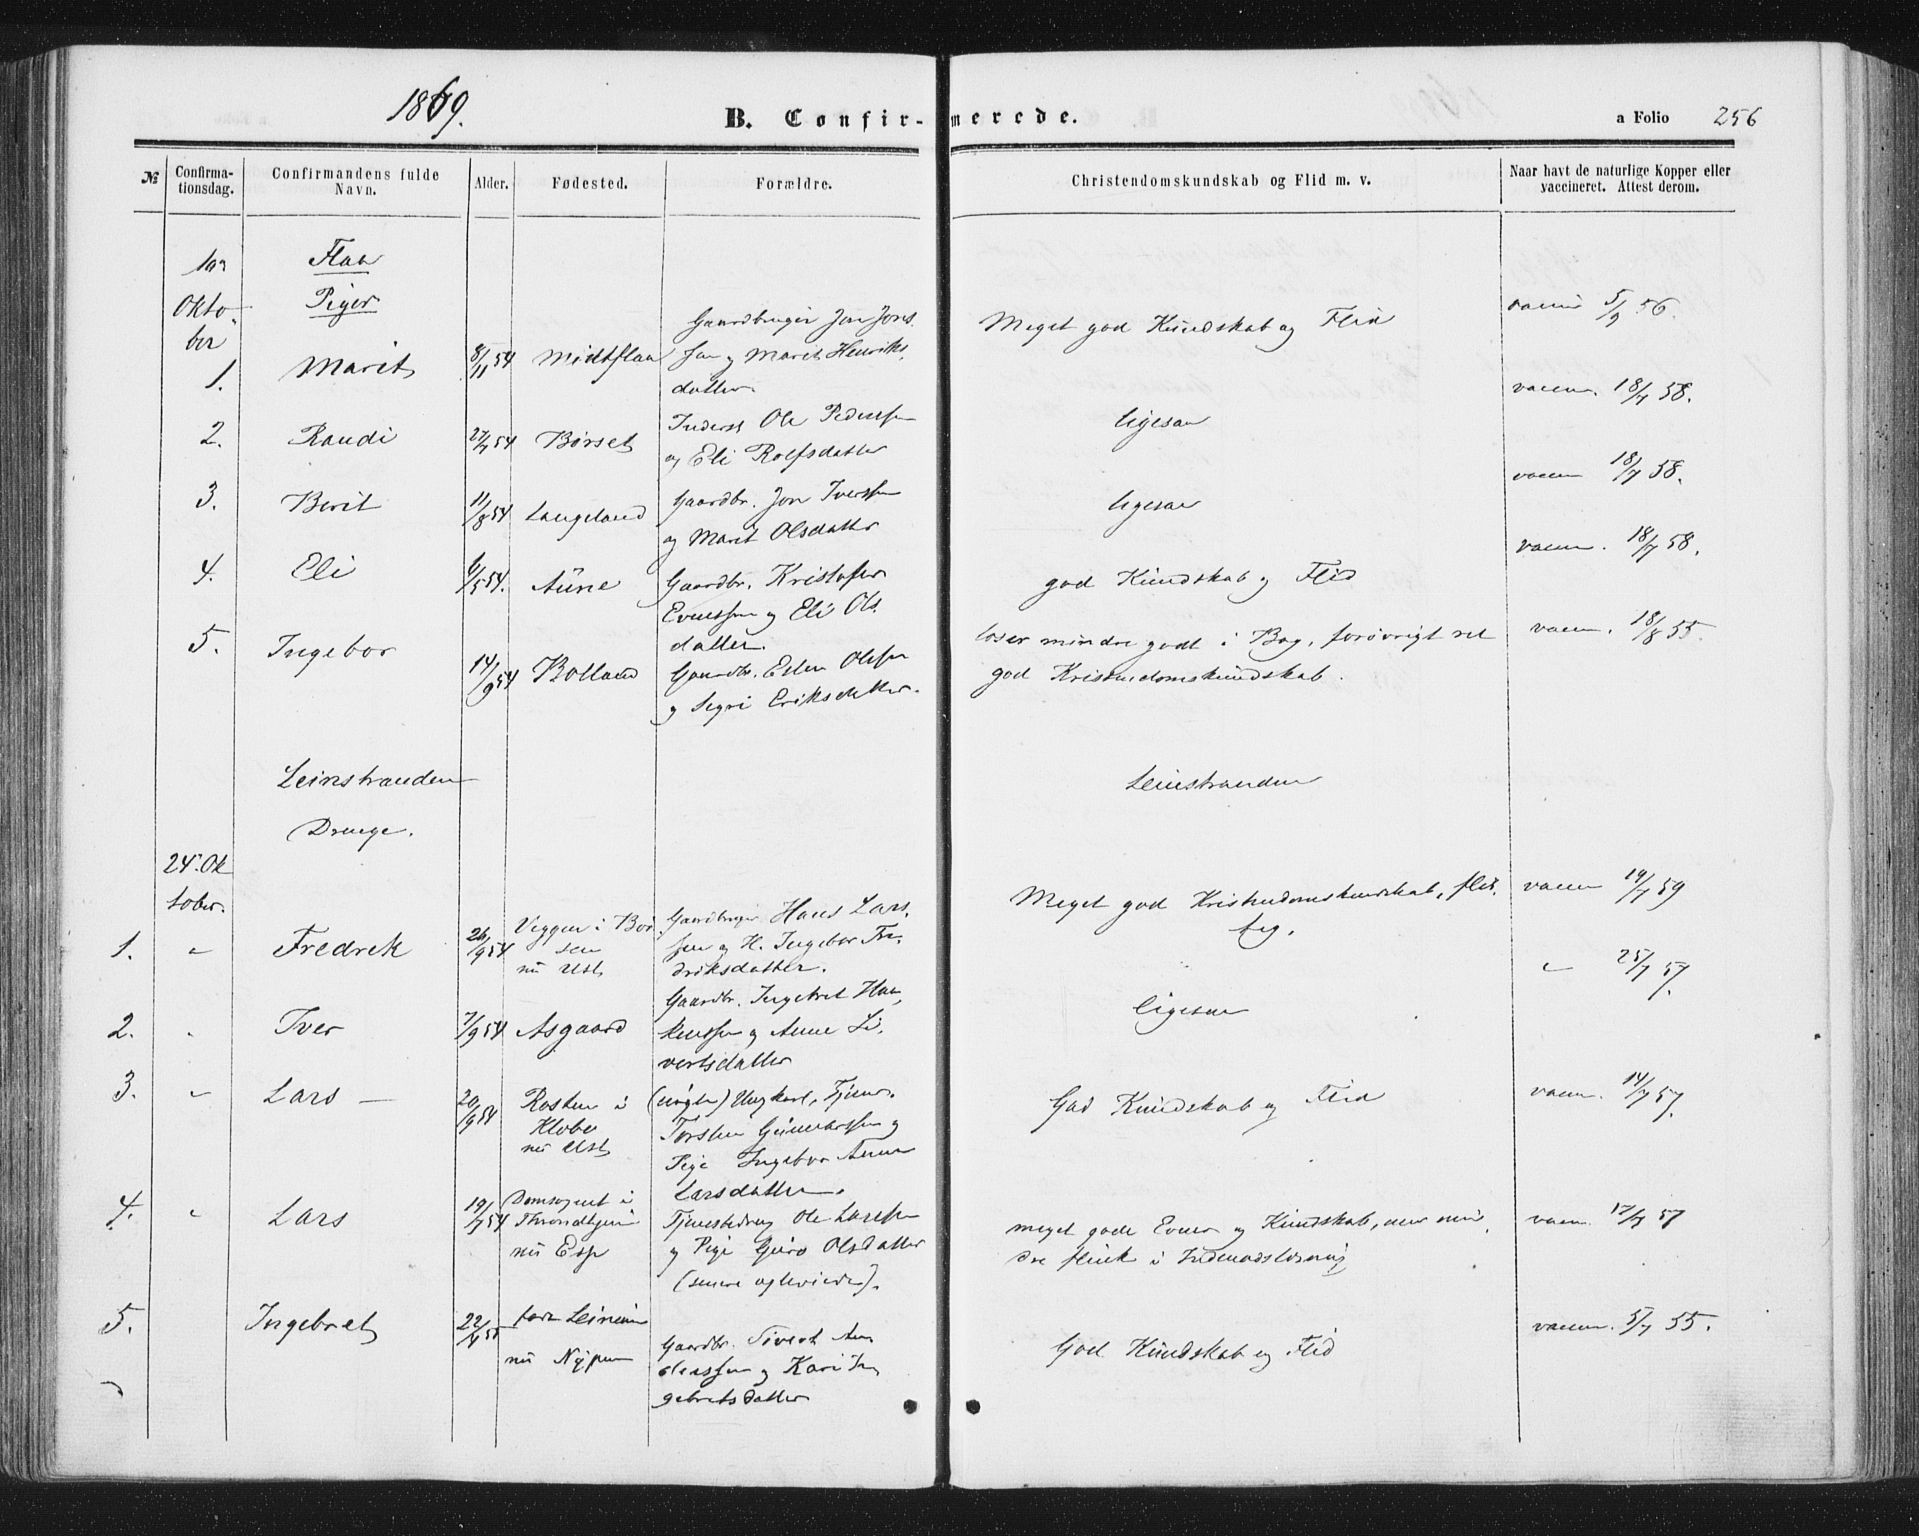 1869.
B. Confirmerede.
a Folio 256
№
Confirma-
tionsdag.
Confirmandens fulde
Navn.
Alder.
Fødested.
Forældre.
Christendomskundskab og Flid m. v.
Naar havt de naturlige Kopper eller
vaccineret. Attest derom.
Flaa
Okto-
ber
Piger
1. Marit 8/11 54 Midtflaa
Gaardbruger Jon Jons
sen og Marit Henriks
datter
Meget god Kundskab og Flid
5/9 56.
2. Randi 27/7 54 Børset
Inderst Ole Pedersen
og Eli Rolfsdatter
ligesaa
vaccin. 18/7 58.
3. Berit 11/8 54 Langeland
Gaardbr. Jon Iversen
og Marit Olsdatter
ligesaa
vaccin 18/7 58.
4. Eli 6/5 54. Aune
Gaardbr. Kristofer
Evensen og Eli Ols
datter.
god Kundskab og Flid
vaccin. 18/7 58.
5. Ingebor 14/9 54 Bolland
Gaardbr. Esten Olsen
og Sigri Eriksdatter.
læser mindre godt i Bog, forøvrigt ret
god Kristendomskundskab.
vaccin. 18/8 55.
Leinstranden
Drenge.
Leinstranden
24. Ok
tober.
1. " Fredrik 26/9 54
Viggen i Bør
sen
nu Ust
Gaardbruger Hans Lars
sen og H. Ingebor Fre
driksdatter.
Meget god Kristendomskundskab, flit
tig.
vaccin 19/7 59
2. " Iver 7/9 54 Asgaard
Gaardbr. Ingebret Haa
kensen og Anne Si
vertsdatter
ligesaa
" 25/7 57.
3. " Lars – 20/9 54
Rosten i
Klæbo
nu Ust
(uægte) Ungkarl, Tjener
Torsten Gunnarsen og
Pige Ingebor Anna
Larsdatter.
God Kundskab og Flid
vaccin. 14/7 57.
4. " Lars 19/7 54
Domsognet i
Throndhjem
nu Esp
Tjenestedreng Ole Larsen
og Pige Guro Olsdatter
(senere egteviede).
meget gode Evner og Kundskab, men min
dre flink i Indenadslæsning
vaccin 17/7 57
5. Ingebret
nu Nypan
Gaardbr. Sivert An
dersen og Kari In
gebretsdatter
God Kundskab og Flid
vaccin. 5/7 55.